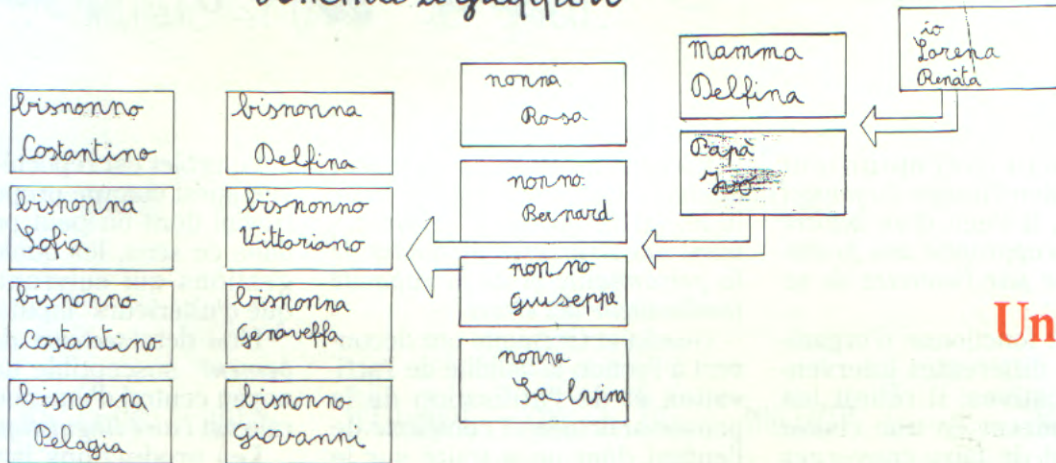 bisnonno
Costantino
bisnonna
Sofia
bisnonno
Costantino
bisnonna
Pelagia
bisnonna
Delfina
bisnonno
Vittoriano
bisnonna
Genoveffa
bisnonno
Giovanni
nonna
Rosa
nonno
Bernard
nonno
Giuseppe
nonna
Mamma
Delfina
Papà
io
Lorena
Renata
Un